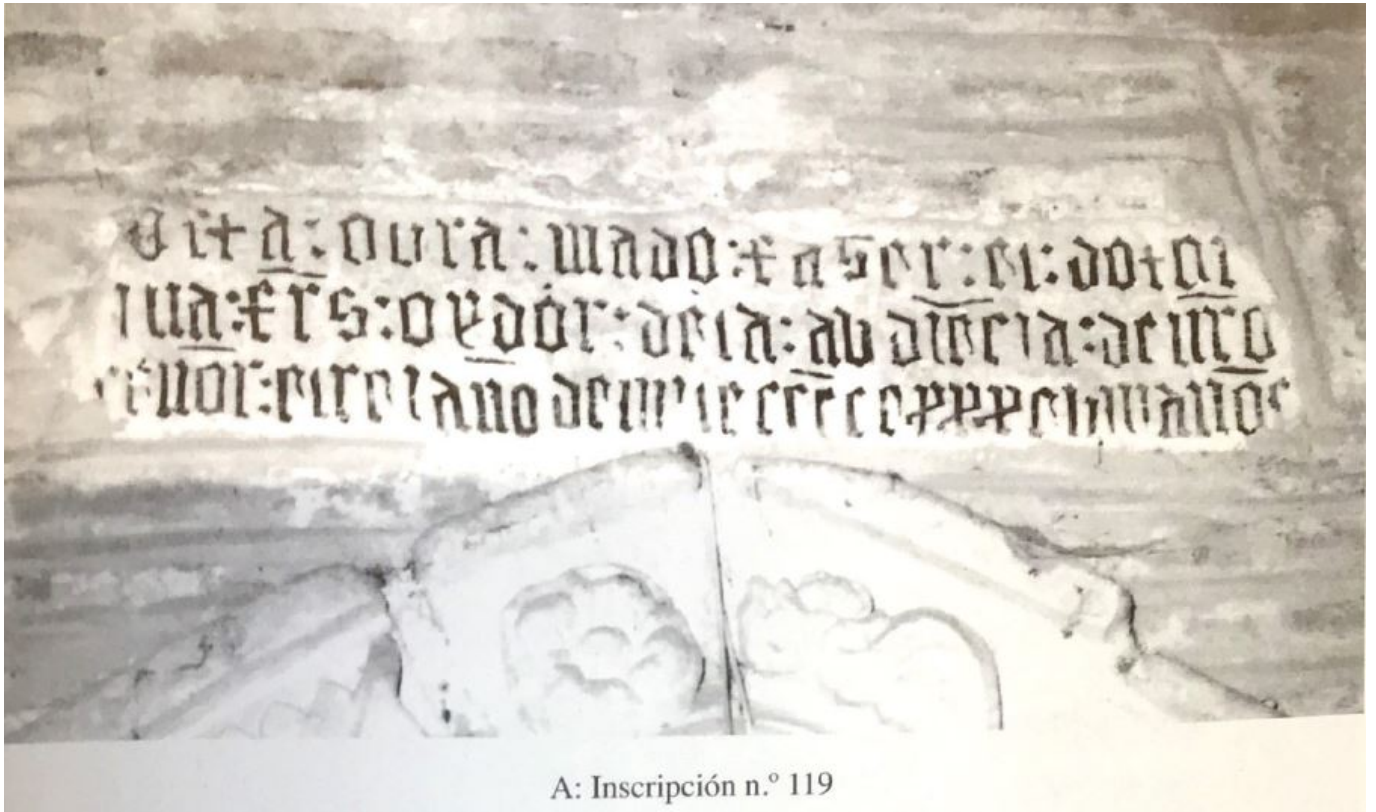 esta : obra : mādo : faser : el : dotor
iuā : frs : oydor : de la : abdiēcia : de nrō
señor : el rei año de mil e cccc e xxx e años
A: Inscripción n.º 119